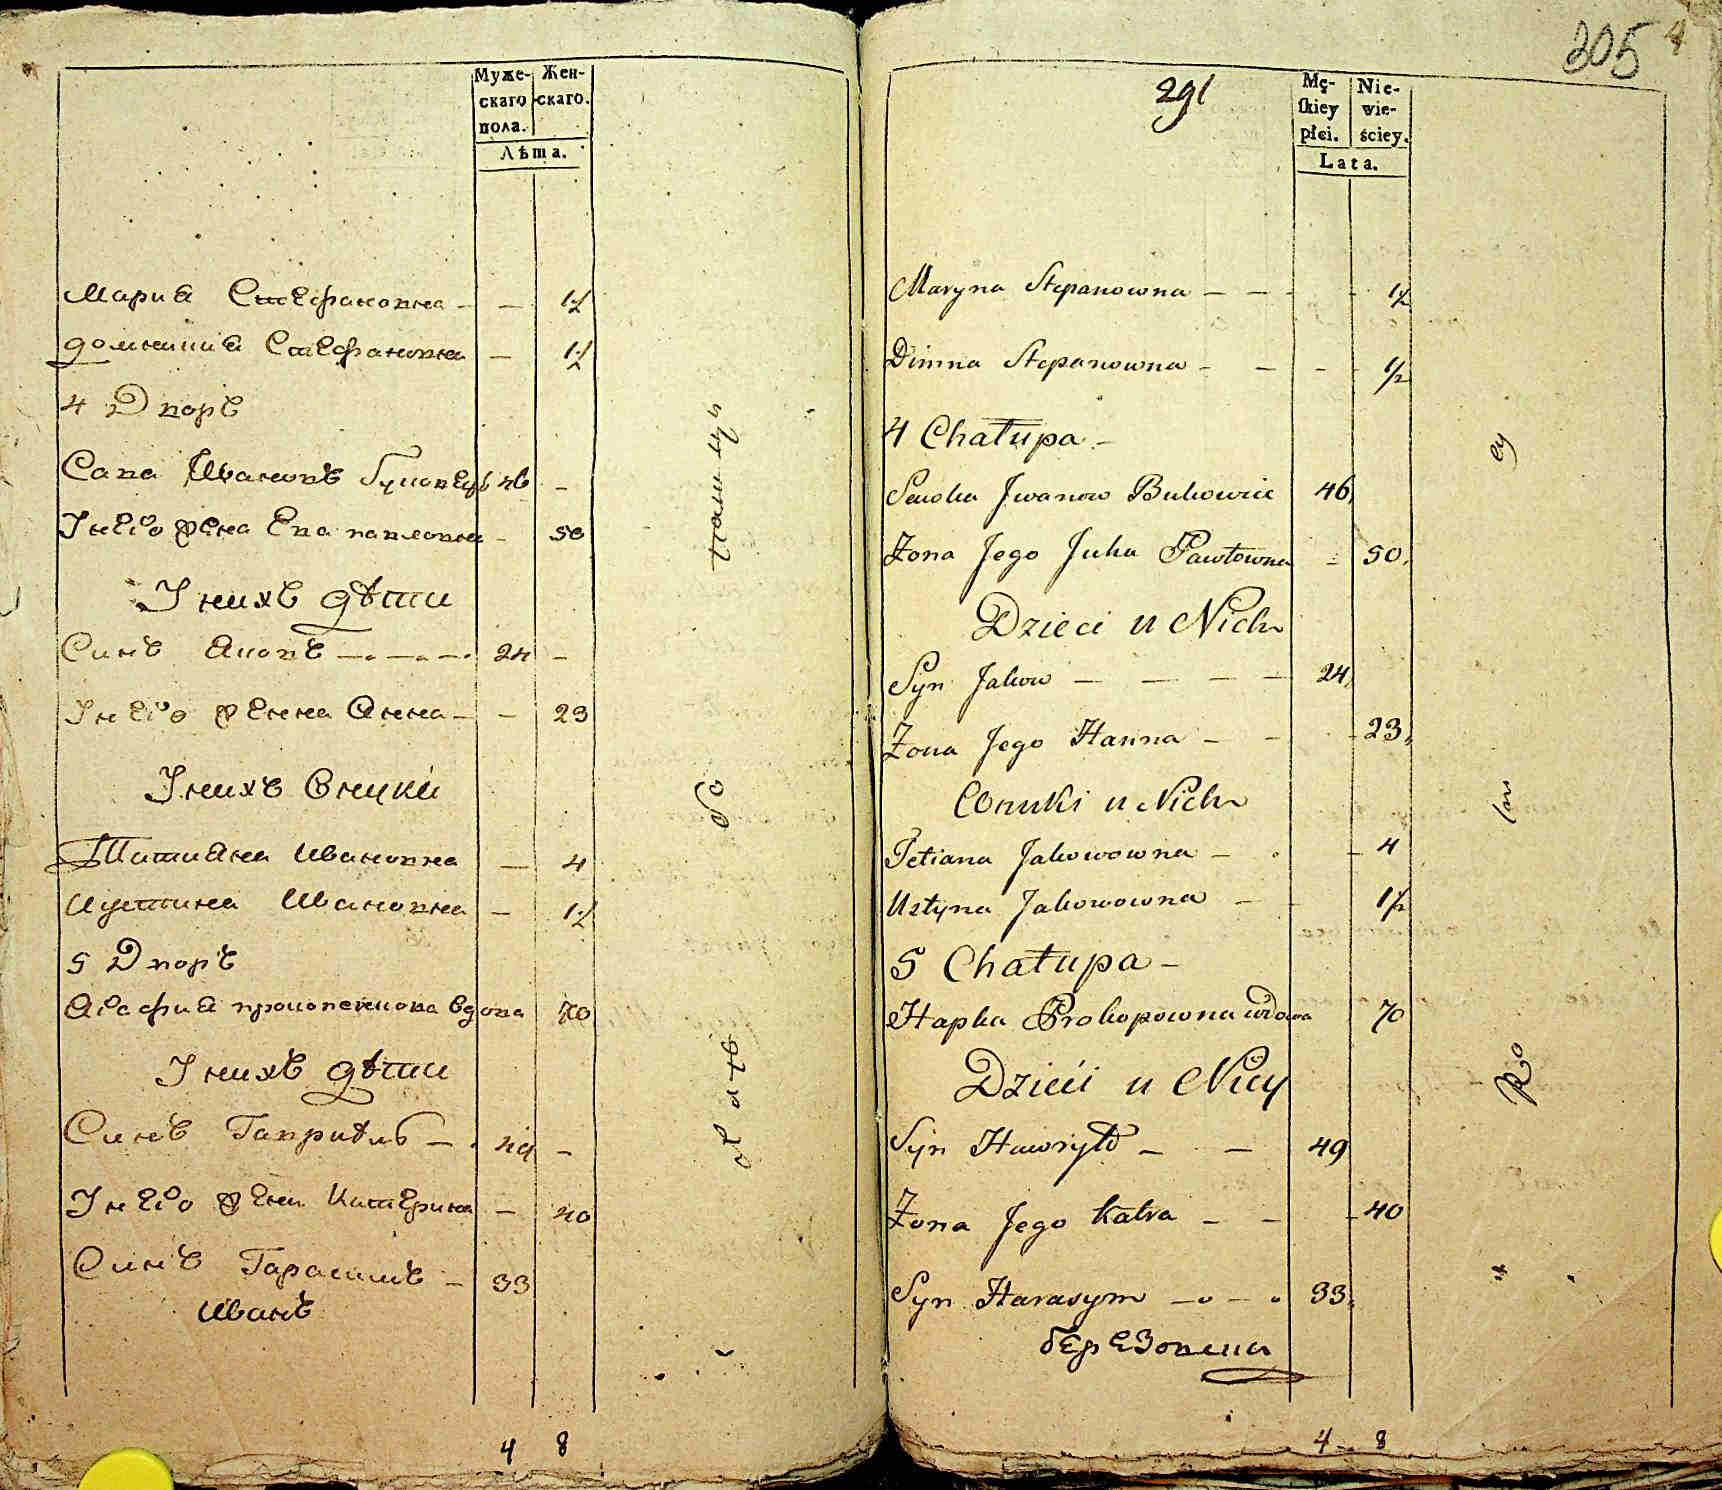 Муже- Жен-
скаго скаго.
пола.
Лѣта.
Мариа Стефановна - - 1½
домниша Стефановна - 1½
4 Дворъ
Сава Ивановъ 46 -
У него жена Ева павловна - 50
У нихъ дѣти
Синъ Яковъ - - - 24 -
У него женна Анна - - 23
У нихъ Внуки
Татияна Ивановна - 4
Иустина Ивановна - 1½
5 Дворъ
Агафиа прокопенкова вдова 70
У нихъ дѣти
Синъ Гавриилъ - 49 -
У него жена Катерина - 40
Синъ Гарасимъ - 33
Иванъ
4 8
305 4
291
Mę- Nie-
skiey wie-
płci. ściey.
Lata.
Maryna Stepanowna - - - 1½
Dimna Stepanowna - - - 1½
4 Chałupa -
Sawka Jwanow Bukowicz 46
Żona Jego Juha Pawłowna - 50
Dzieci u Nich
Syn Jakow - - - - 24
Żona Jego Hanna - - - 23
Wnuki u Nich
Tetiana Jakowowna - - 4
Ustyna Jakowowna - - 1½
5 Chałupa -
Hapka Prokopowna wdowa 70
Dzieci u Niey
Syn Hawryło - - 49
Żona Jego Katra - - - 40
Syn Harasym - - 33
березовски
4 8